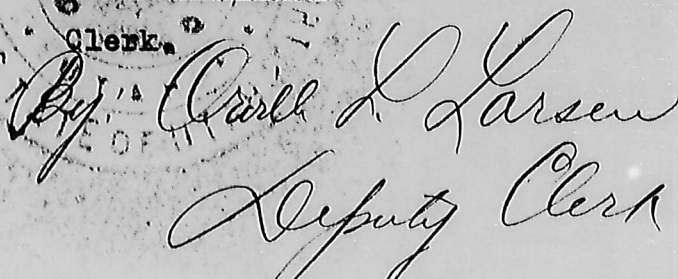 Clerk.
By Orrell L Larsen
Deputy Clerk